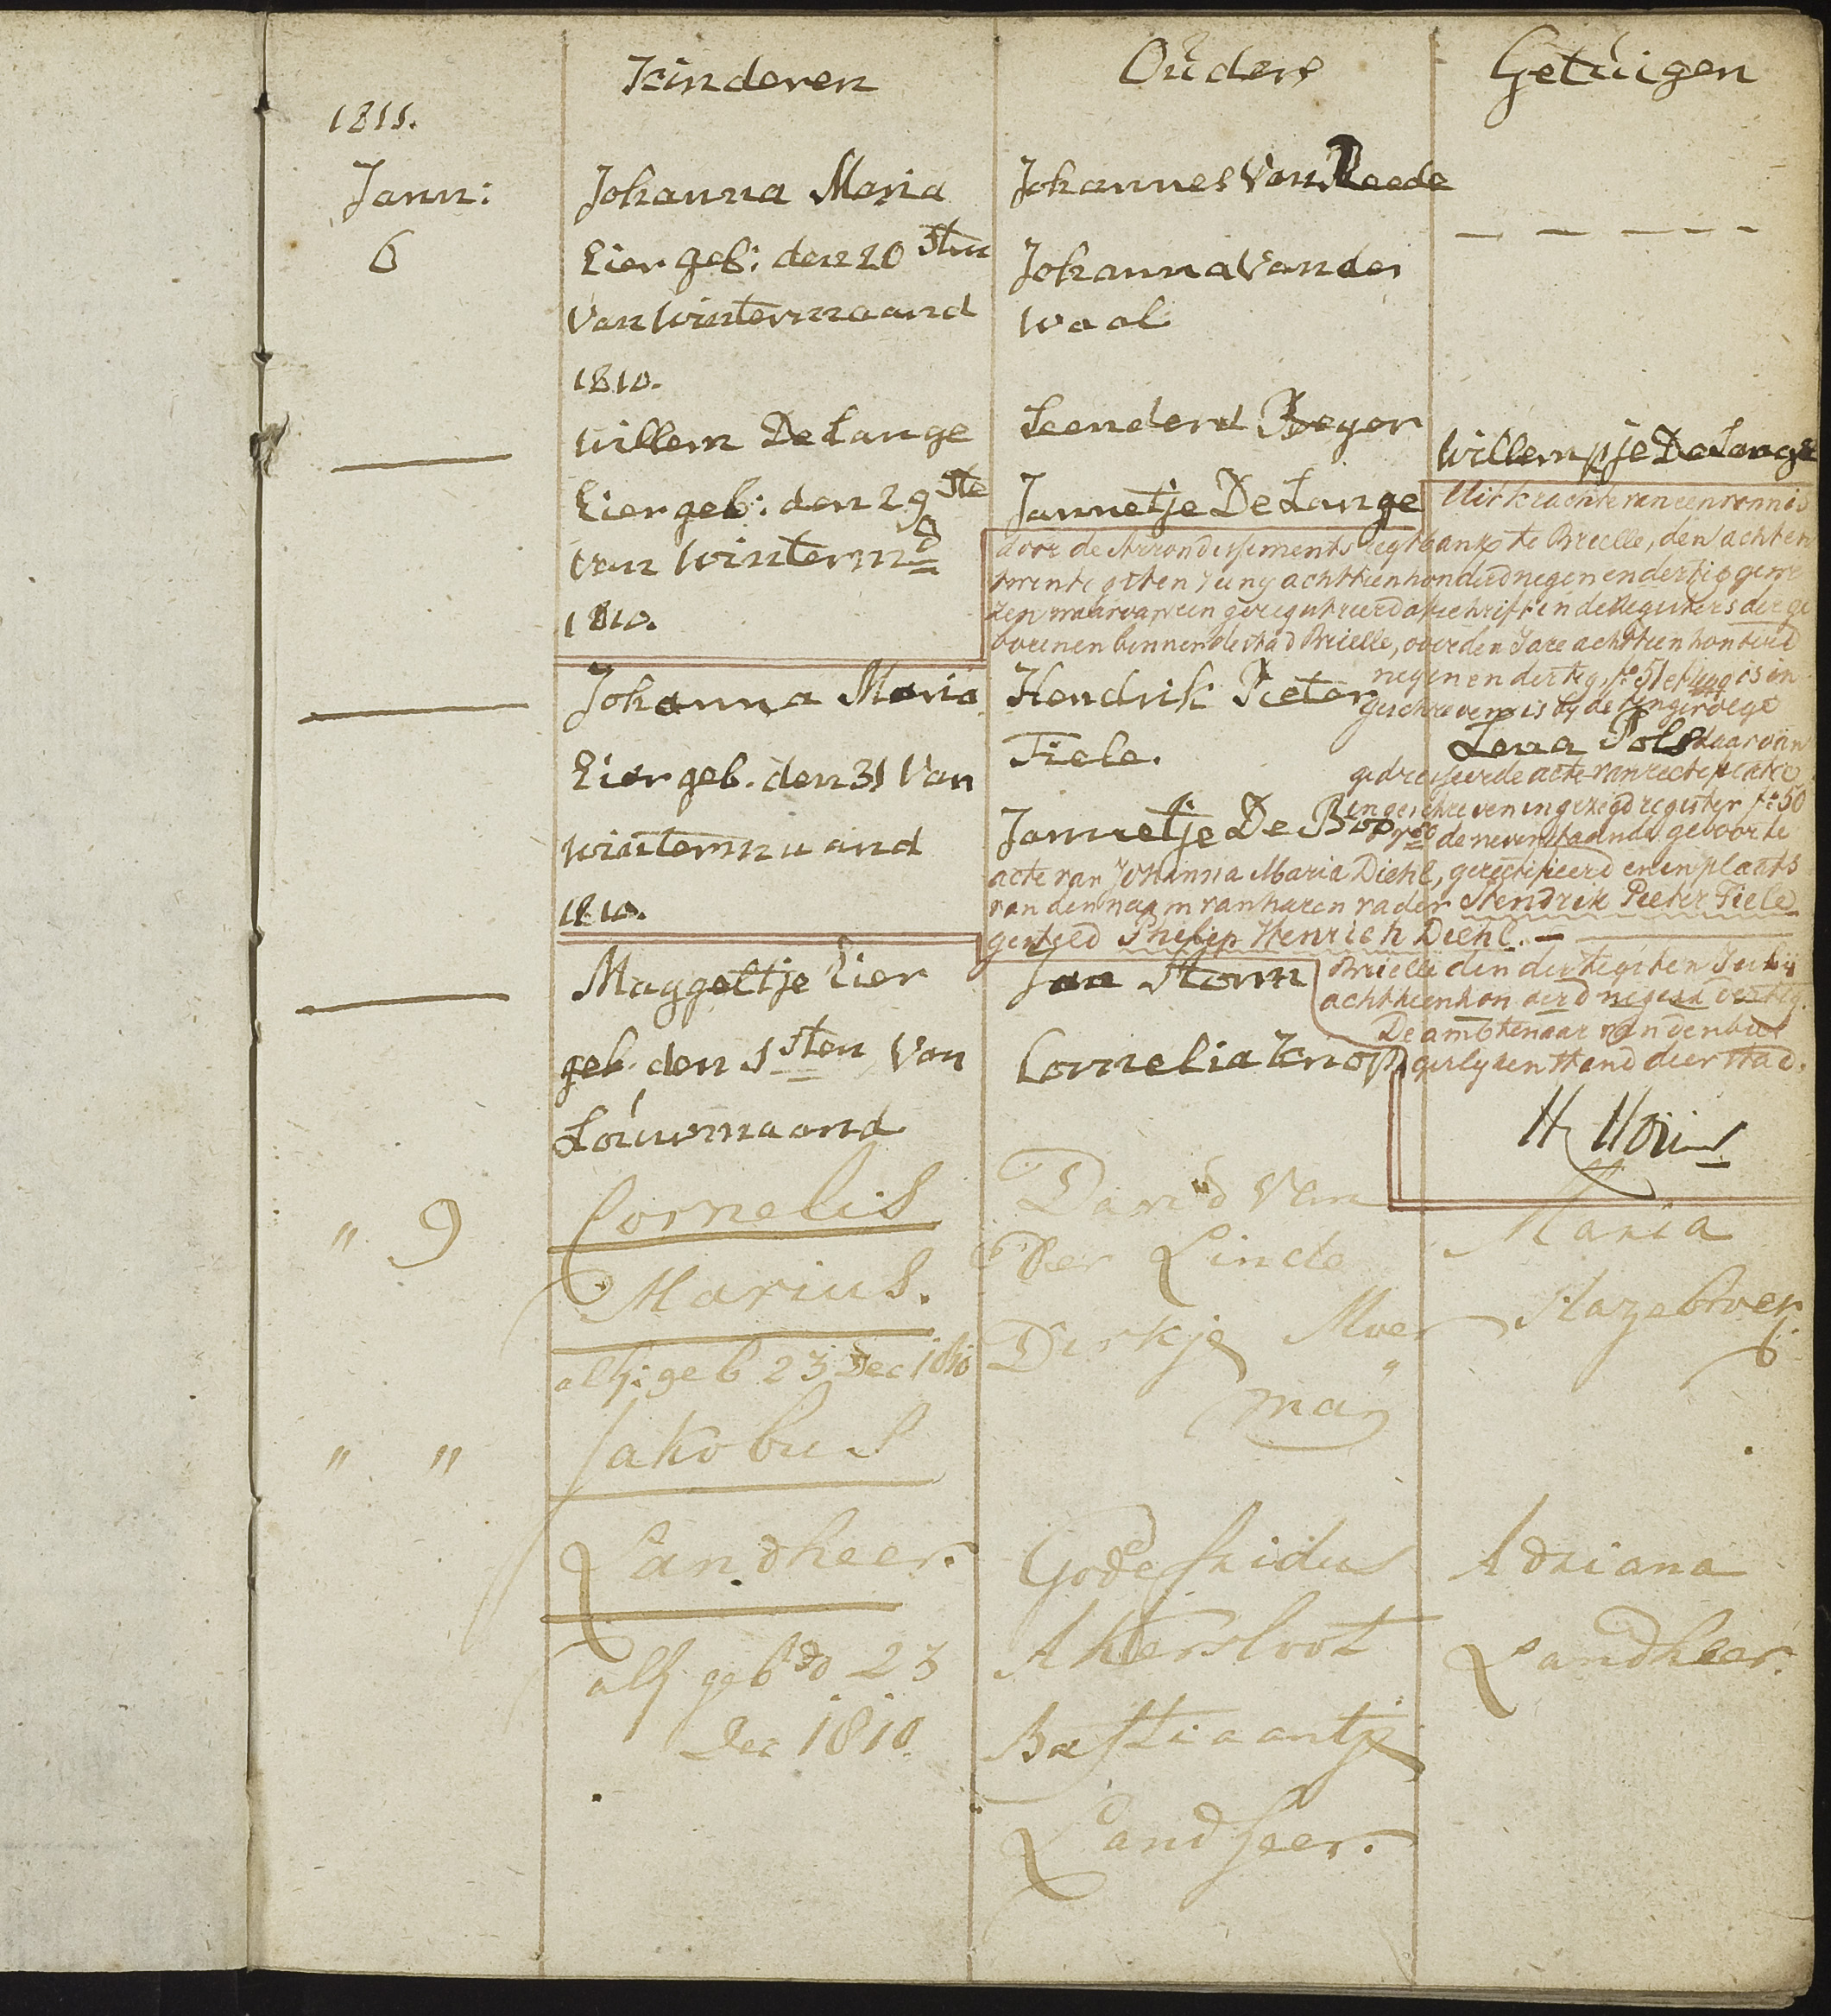 Kinderen
Ouders
Getuigen
1811.
Jann:
6
Johanna Maria
Eier geb: den 20 sten
Van Wintermaand
1810.
Johannes Van Reede
Johanna Van der
Waal
— — — — —
Willem De Lange
Eier geb: den 29 ste
van Winterm d
1810.
Leenderd Beyer
Jannetje De Lange
Willempje De Lange
Johanna Maria
Eier geb. den 31 Van
Wintermaand
1810.
Hendrik Pieter
Tiele.
Jannetje De Bop
Lena Pols
Uit kracht van een vonnis
door de Arrondissements regtbank te Brielle, den achten
twintigsten Juny achttienhonderd negen en dertig gewe
zen, waarvan een geregistreerd afschrift in de Registers der ge
boorenen binnen de stad Brielle, over den Jare achttien honderd
negen en dertig, fo 51
geschreven is by de
daar van
gedresseerde acte van rectificatie
ingeschreven in gezegd register fo 50
de nevenstaande geboorte
acte van Johanna Maria Diehl, gerectificeerd en in plaats
van den naam van haren vader Hendrik Pieter Tiele
gesteld Philip Henrich Diehl. —
Brielle den dertigsten July
achttienhonderd negen dertig.
De ambtenaar van den bur
gerlyken stand dier stad.
Maggeltje Eier
geb. den 1 sten Van
Louwmaand
Jan Storm
Cornelia Knop
" 9
Cornelis
Marius.
alh: geb 23 Dec 1810
David Van
Der Linde
Dirkje Moer
man
Maria
Hazebroek
" "
Jakobus
Landheer.
alh geb d 23
Dec 1810.
Godefridus
Akersloot
Bastiaantje
Landheer.
Adriana
Landheer.